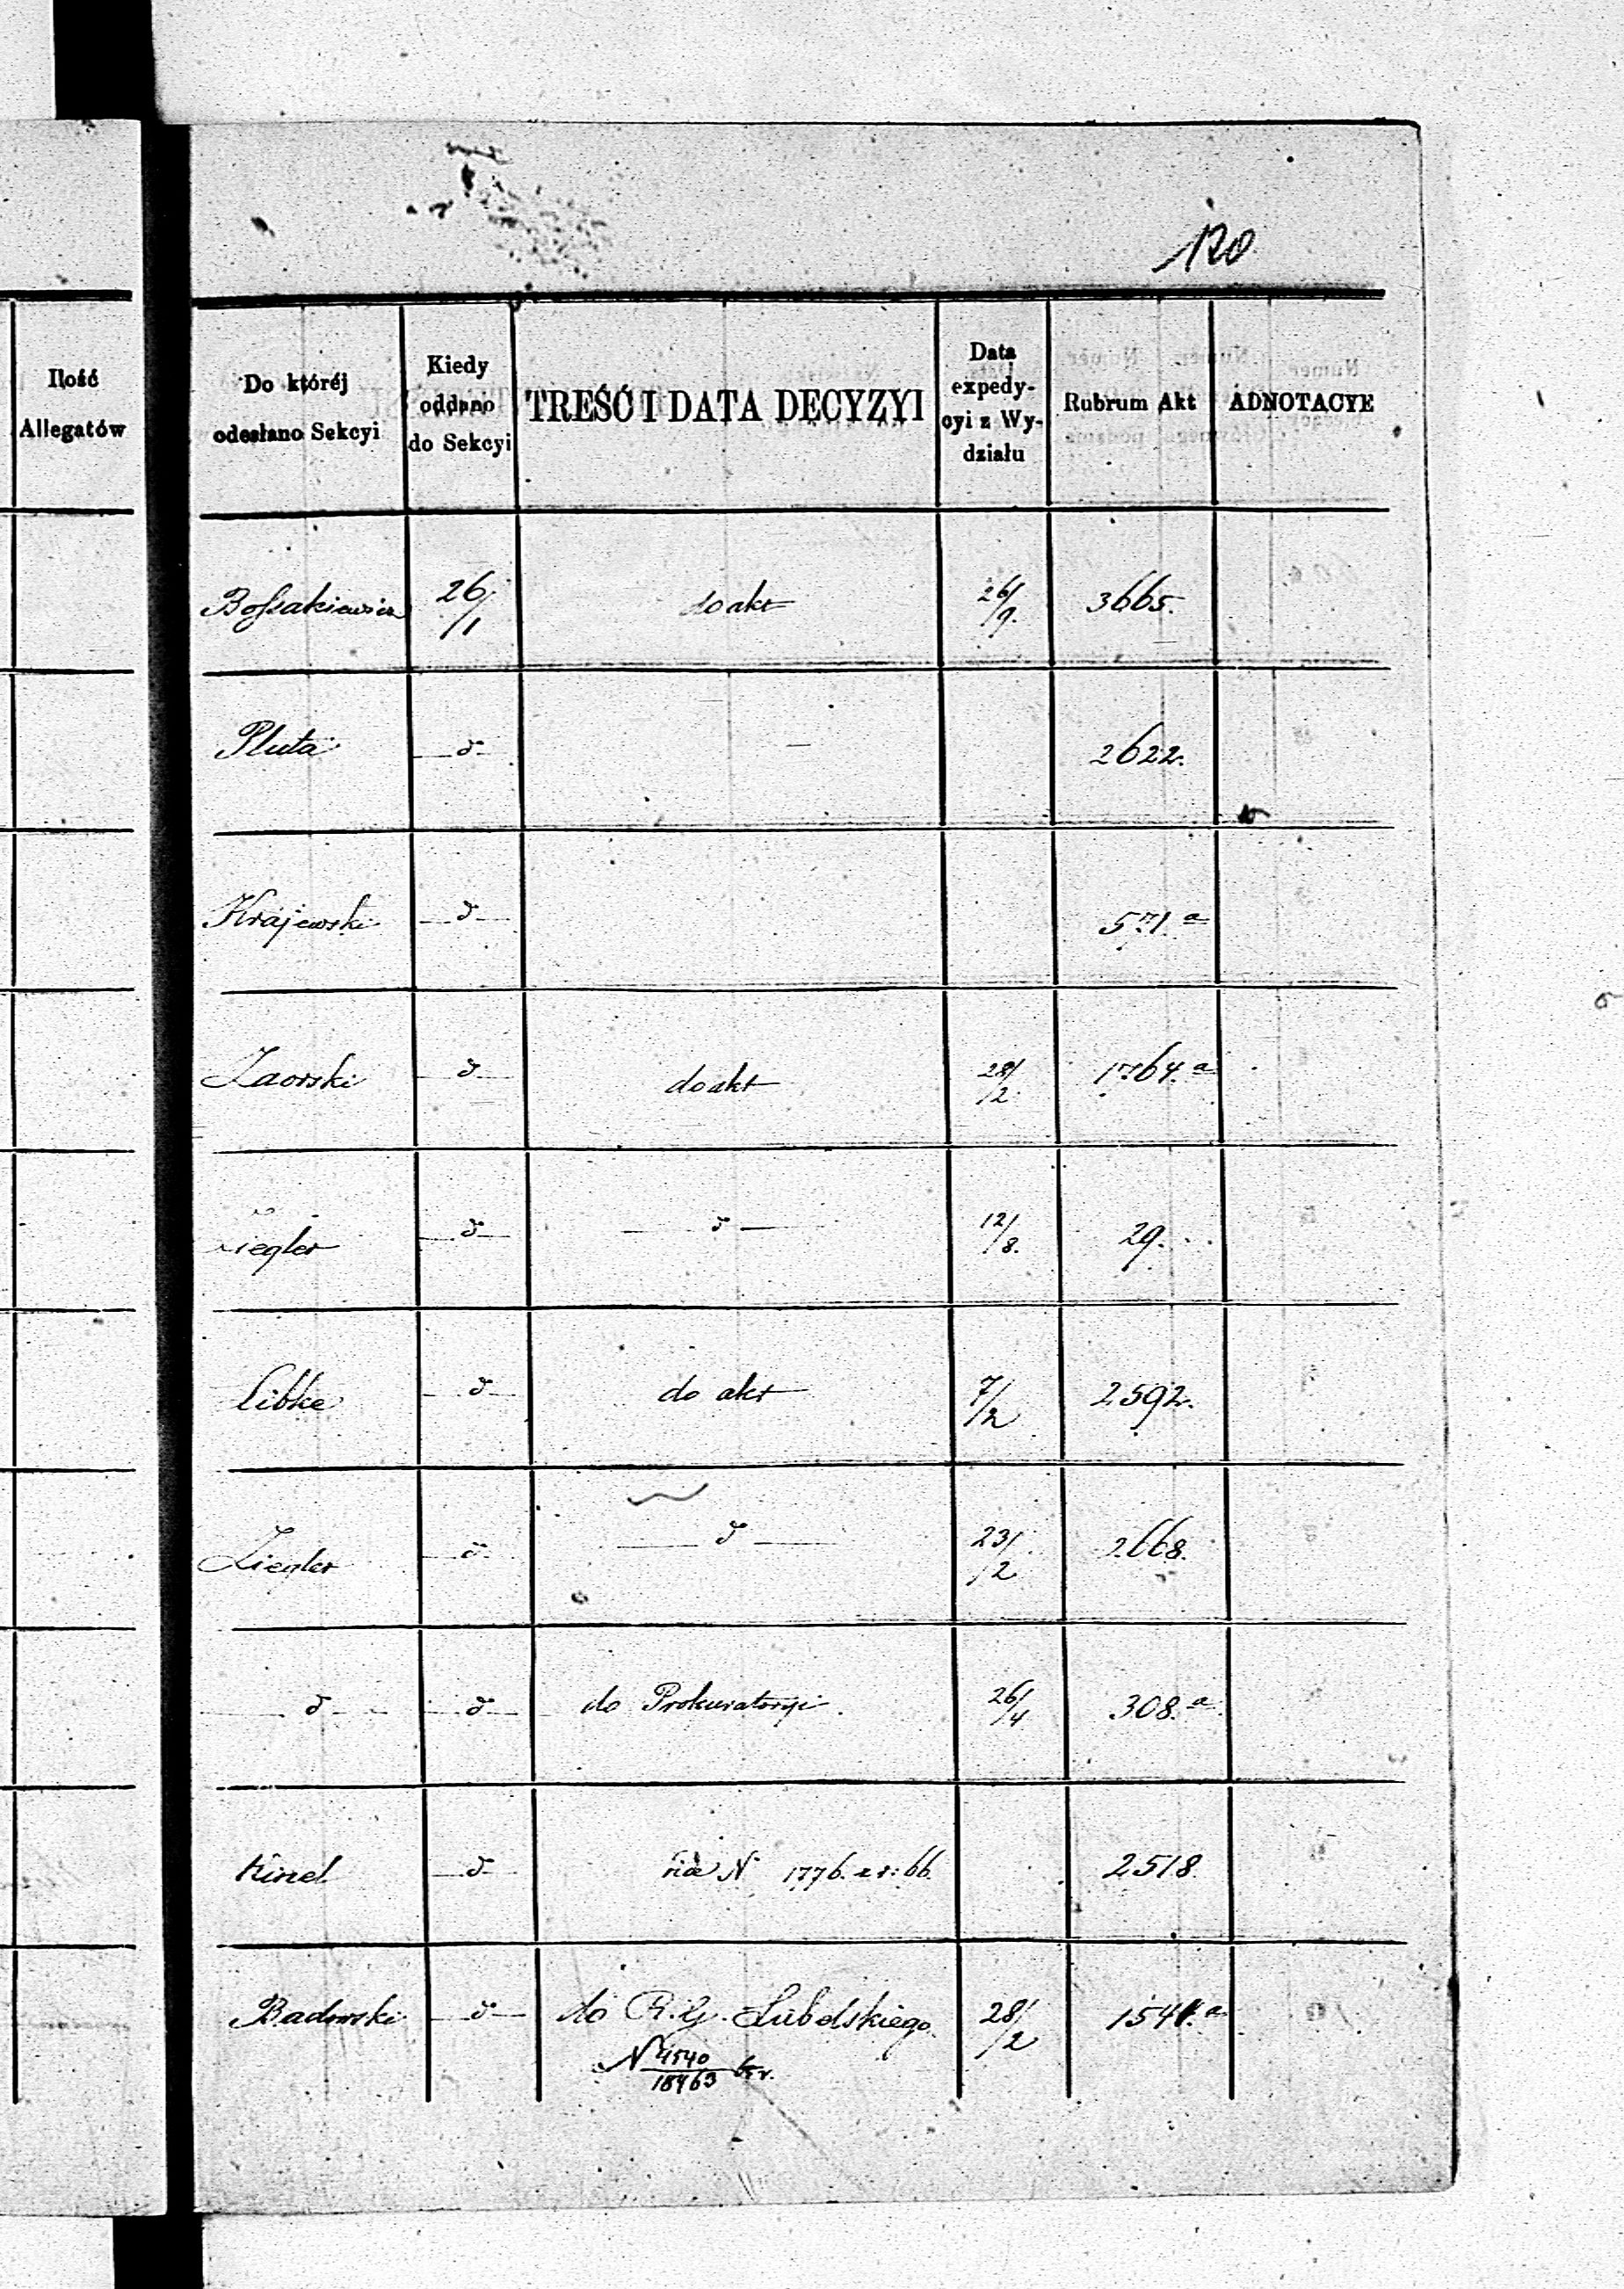 120
Ilość
Allegatów
Do któréj
odesłano Sekcyi
Kiedy
oddano
do Sekcyi
TREŚĆ I DATA DECYZYI
Data
expedy-
cyi z Wy-
działu
Rubrum Akt
ADNOTACYE
Bossakiewicz 26/1 do akt 26/9. 3665.
Pluta — d — — 2622.
Krajewski — d — 571.a
Zaorski — d — do akt 28/2 1764.a
Ziegler — d — — d — 12/8. 29.
Libke — d — do akt 7/2 2592.
Ziegler — d — — d — 23/2 2668.
— d — — d — do Prokuratoryi. 26/4 308.a
Kinel — d — N 1776. z r: 66. 2518
Badowski — d — do R. G. Lubelskiego 28/2 1541.a
N 4540/18463